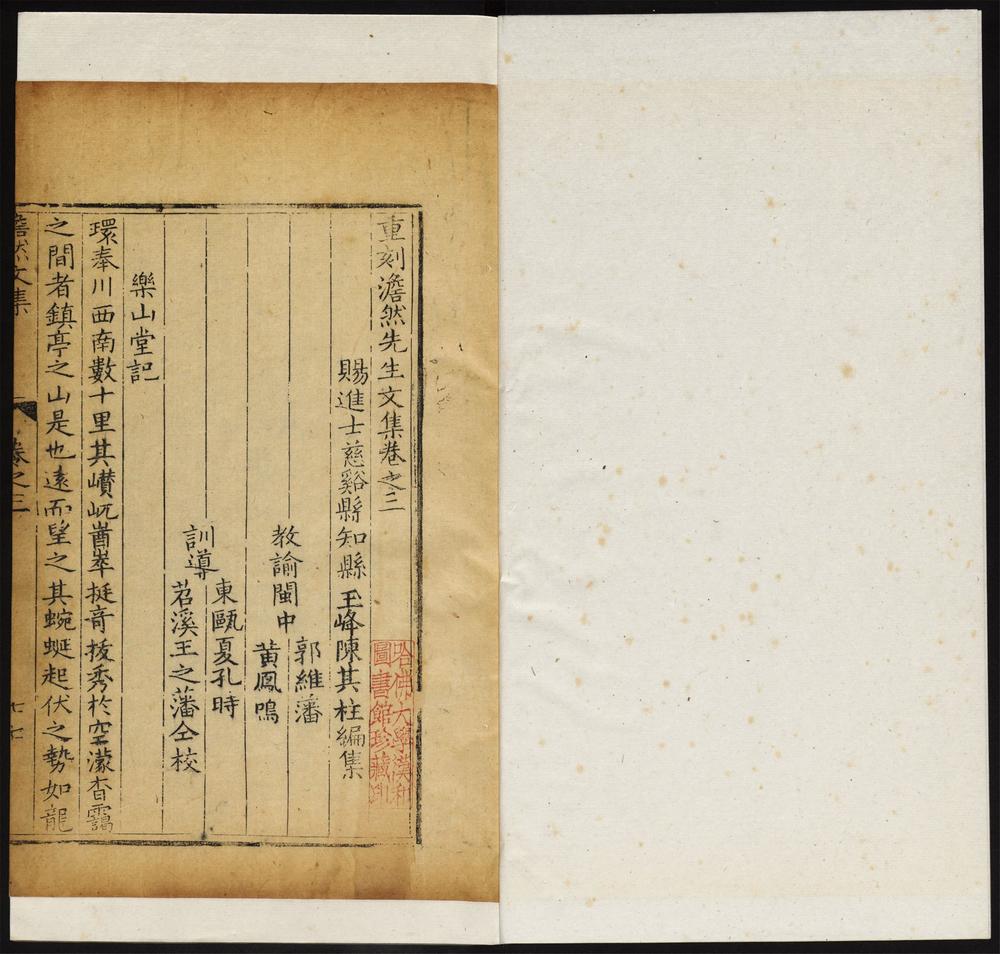 重刻澹然先生文集卷之三
賜進士慈谿縣知縣玉峰陳其柱編集
教諭閩中郭維藩
黃鳳鳴
訓導東甌夏孔時
苕溪王之藩仝校
樂山堂記
環奉川西南數十里其巑岏崷崒挺奇拔秀於空濛杳靄
之間者鎮亭之山是也遠而望之其蜿蜒起伏之勢如龍
澹然文集 卷之三
哈佛大學漢和
圖書館珍藏印